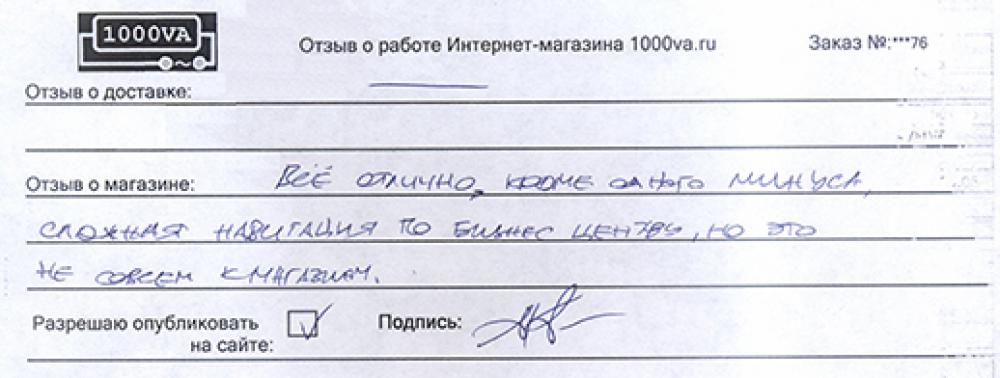 1000VA
Отзыв о работе Интернет-магазина 1000va.ru
Заказ №:***76
Отзыв о доставке:
Отзыв о магазине: Всё отлично, кроме одного минуса,
сложная навигация по бизнес центру, но это
не совсем к магазинам.
Разрешаю опубликовать
на сайте:
Подпись: